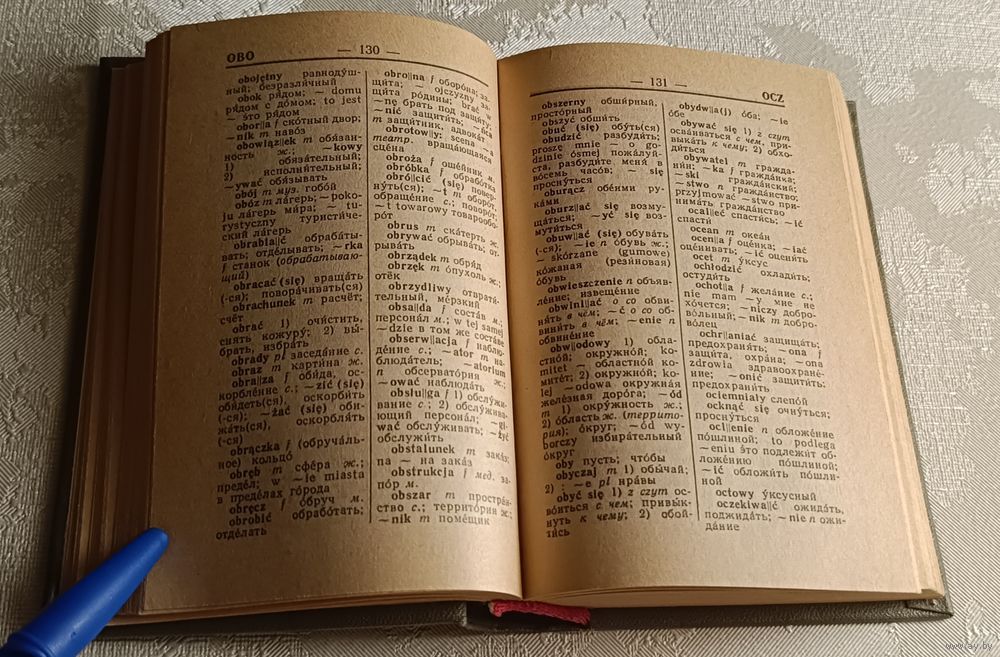 ОВО — 130 —
obojętny равноду́ш-
ный; безразли́чный
obok ря́дом; — domu
ря́дом с до́мом; to jest
— э́то ря́дом
obor||a f ско́тный двор;
~nik m наво́з
obowiąz||ek m обя́зан-
ность ж.; ~kowy
1) обяза́тельный;
2) исполни́тельный;
~ywać обя́зывать
obój m муз. гобо́й
obóz m ла́герь; ~ poko-
ju ла́герь ми́ра; ~ tu-
rystyczny туристи́че-
ский ла́герь
obrabia||ć обраба́ты-
вать; отде́лывать; ~rka
f стано́к (обрабатываю-
щий)
obracać (się) враща́ть
(-ся); повора́чивать(ся)
obrachunek m расчёт;
счёт
obrać 1) очи́стить,
снять кожуру́; 2) вы́-
брать, избра́ть
obrady pl заседа́ние с.
obraz m карти́на ж.
obra||za f оби́да, ос-
корбле́ние с.; ~zić (się)
оби́деть(ся), оскорби́ть
(-ся); ~żać (się) оби-
жа́ть(ся), оскорбля́ть
(-ся)
obrączka f (обруча́ль-
ное) кольцо́
obręb m сфе́ра ж.;
преде́л; w ~ie miasta
в преде́лах го́рода
obręcz f о́бруч м.
obrobić обрабо́тать;
отде́лать
obro||na f оборо́на; за-
щи́та; ~ ojczyzny за-
щи́та ро́дины; brać w
~nę брать под защи́ту;
~nić защити́ть; ~ńca
m защи́тник, адвока́т
obrotow||y: scena ~a
театр. враща́ющаяся
сце́на
obroża f оше́йник м.
obróbka f обрабо́тка
obró||cić (się) повер-
ну́ть(ся); ~t m оборо́т,
обраще́ние с.; поворо́т;
~t towarowy товарообо-
ро́т
obrus m ска́терть ж.
obrywać обрыва́ть, от-
рыва́ть
obrządek m обря́д
obrzęk m о́пухоль ж.,
отёк
obrzydliwy отврати́-
тельный, ме́рзкий
obsa||da f соста́в м.;
персона́л м.; w tej samej
~dzie в том же соста́ве
obserw||acja f наблю-
де́ние с.; ~ator m на-
блюда́тель; ~atorium
n обсервато́рия ж.;
~ować наблюда́ть
obsłu||ga f 1) обслу́жи-
вание с.; 2) обслу́жива-
ющий персона́л; ~gi-
wać обслу́живать; ~żyć
обслужи́ть
obstalunek m зака́з;
na ~ на зака́з
obstrukcja f мед. за-
по́р м.
obszar m простра́н-
ство с.; террито́рия ж.;
~nik m поме́щик
— 131 — OCZ
obszerny обши́рный,
просто́рный
obszyć обши́ть
obuć (się) обу́ть(ся)
obudzić разбуди́ть;
proszę mnie ~ o go-
dzinie ósmej пожа́луй-
ста, разбуди́те меня́ в
во́семь часо́в; ~ się
просну́ться
oburącz обе́ими ру-
ка́ми
oburz||ać się возму-
ща́ться; ~yć się воз-
мути́ться
obuw||ać (się) обува́ть
(-ся); ~ie n о́бувь ж.;
~ skórzane (gumowe)
ко́жаная (рези́новая)
о́бувь
obwieszczenie n объяв-
ле́ние; извеще́ние
obwini||ać o co обви-
ня́ть в чём; ~ć o co об-
вини́ть в чём; ~enie n
обвине́ние
obw||odowy 1) обла-
стно́й, окружно́й; ko-
mitet ~ областно́й ко-
мите́т; 2) окружно́й; ko-
lej ~odowa окружна́я
желе́зная доро́га; ~ód
m 1) окру́жность ж.;
2) о́бласть ж. (террито-
рия); о́круг; ~ód wy-
borczy избира́тельный
о́круг
oby пусть, что́бы
obyczaj m 1) обы́чай;
2) : ~e pl нра́вы
obyć się 1) z czym ос-
во́иться с чем, привы́к-
нуть к чему; 2) обой-
ти́сь
obydw||a(j) о́ба; ~ie
о́бе
obywać się 1) z czym
осва́иваться с чем, при-
выка́ть к чему; 2) обхо-
ди́ться
obywatel m гражда-
ни́н; ~ka f гражда́нка;
~ski гражда́нский;
~stwo n гражда́нство;
przyjmować ~stwo при-
нима́ть гражда́нство
ocal||eć спасти́сь; ~ić
спасти́
ocean m океа́н
ocen||a f оце́нка; ~iać
оце́нивать; ~ić оцени́ть
ocet m у́ксус
ochłodzić охлади́ть,
остуди́ть
ochot||a f жела́ние с.;
nie mam ~y мне не
хо́чется; ~niczy добро-
во́льный; ~nik m добро-
во́лец
ochr||aniać защища́ть;
предохраня́ть; ~ona f
защи́та, охра́на; ~ona
zdrowia здравоохране́-
ние; ~onić защити́ть;
предохрани́ть
ociemniały слепо́й
ocknąć się очну́ться;
просну́ться
ocl||enie n обложе́ние
по́шлиной; to podlega
~eniu э́то подлежи́т об-
ложе́нию по́шлиной;
~ić обложи́ть по́шли-
ной
octowy у́ксусный
oczekiwa||ć ожида́ть,
поджида́ть; ~nie n ожи-
да́ние
www.ay.by